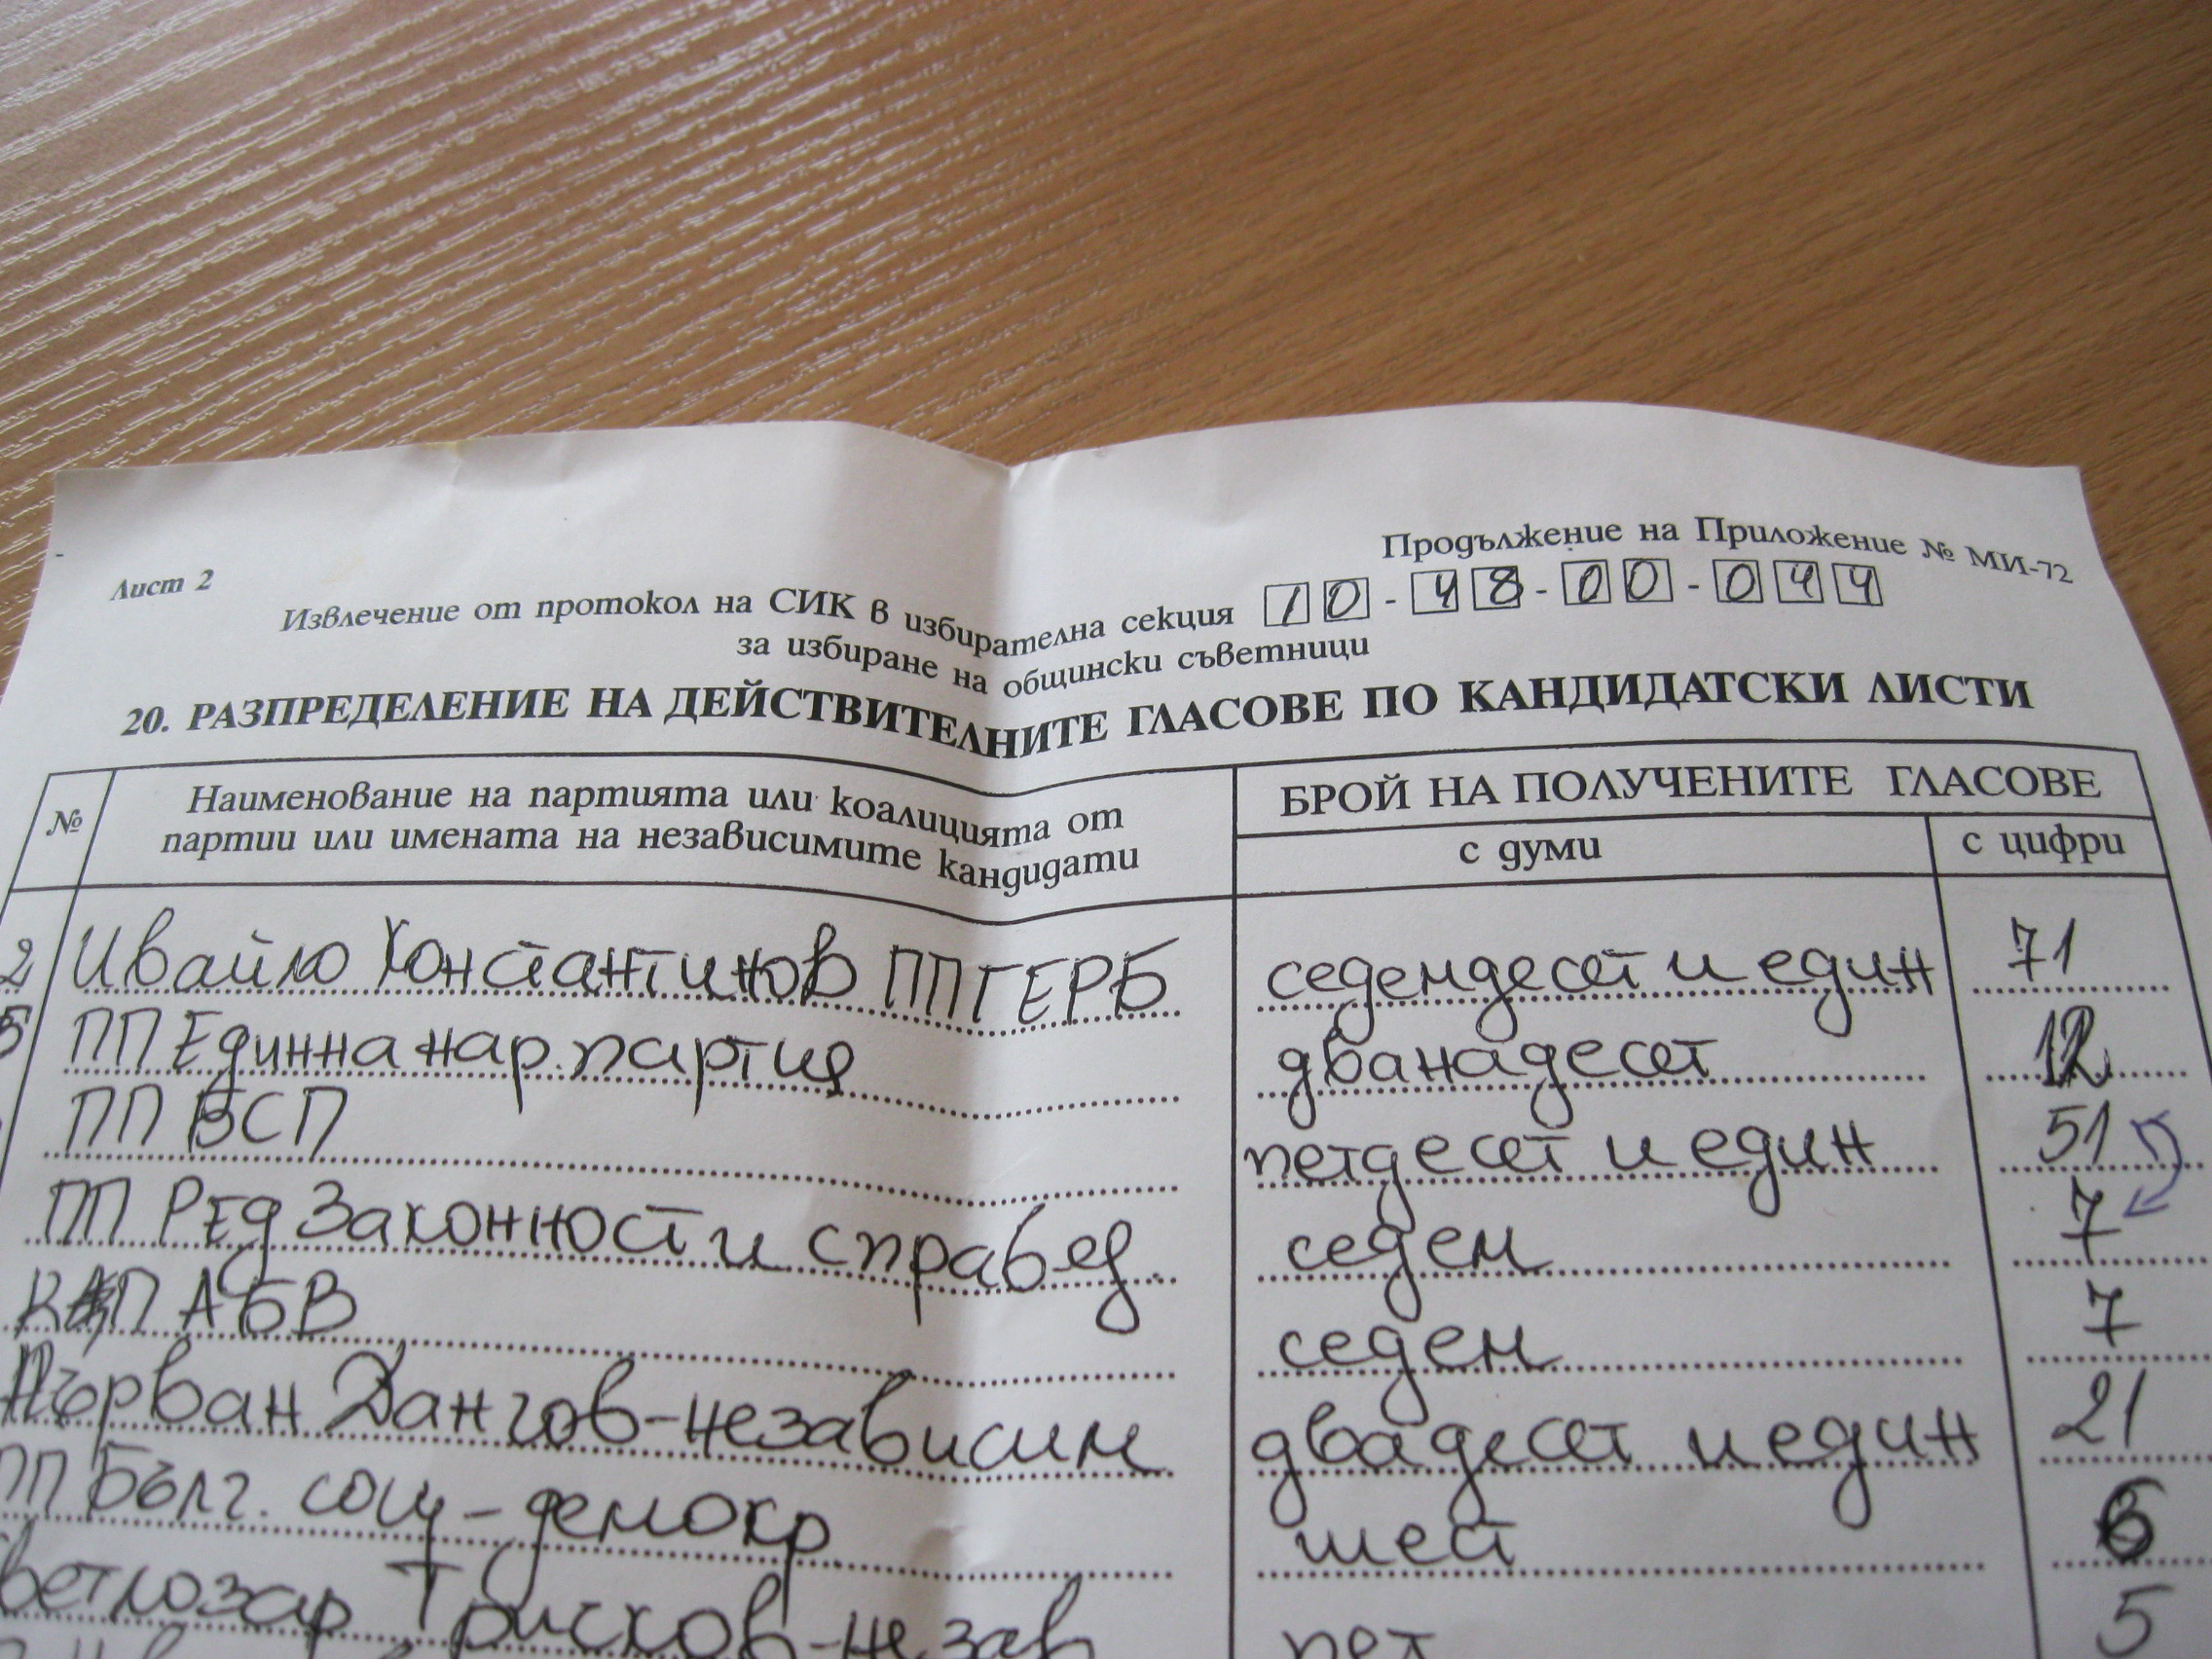 Продължение на Приложение № МИ-72
Лист 2
Извлечение от протокол на СИК в избирателна секция 10-48-00-044
за избиране на общински съветници
20. РАЗПРЕДЕЛЕНИЕ НА ДЕЙСТВИТЕЛНИТЕ ГЛАСОВЕ ПО КАНДИДАТСКИ ЛИСТИ
№ Наименование на партията или коалицията от партии или имената на независимите кандидати БРОЙ НА ПОЛУЧЕНИТЕ ГЛАСОВЕ
с думи с цифри
2 Ивайло Константинов ПП ГЕРБ седемдесет и един 71
5 ПП Единна нар. партия дванадесет 12
ПП БСП петдесет и един 51
ПП Ред Законност и справед. седем 7
АБВ седем 7
Първан Дангов-независим двадесет и един 21
ПП Бълг. соц-демокр шест 6
ветлозар -незав пет 5